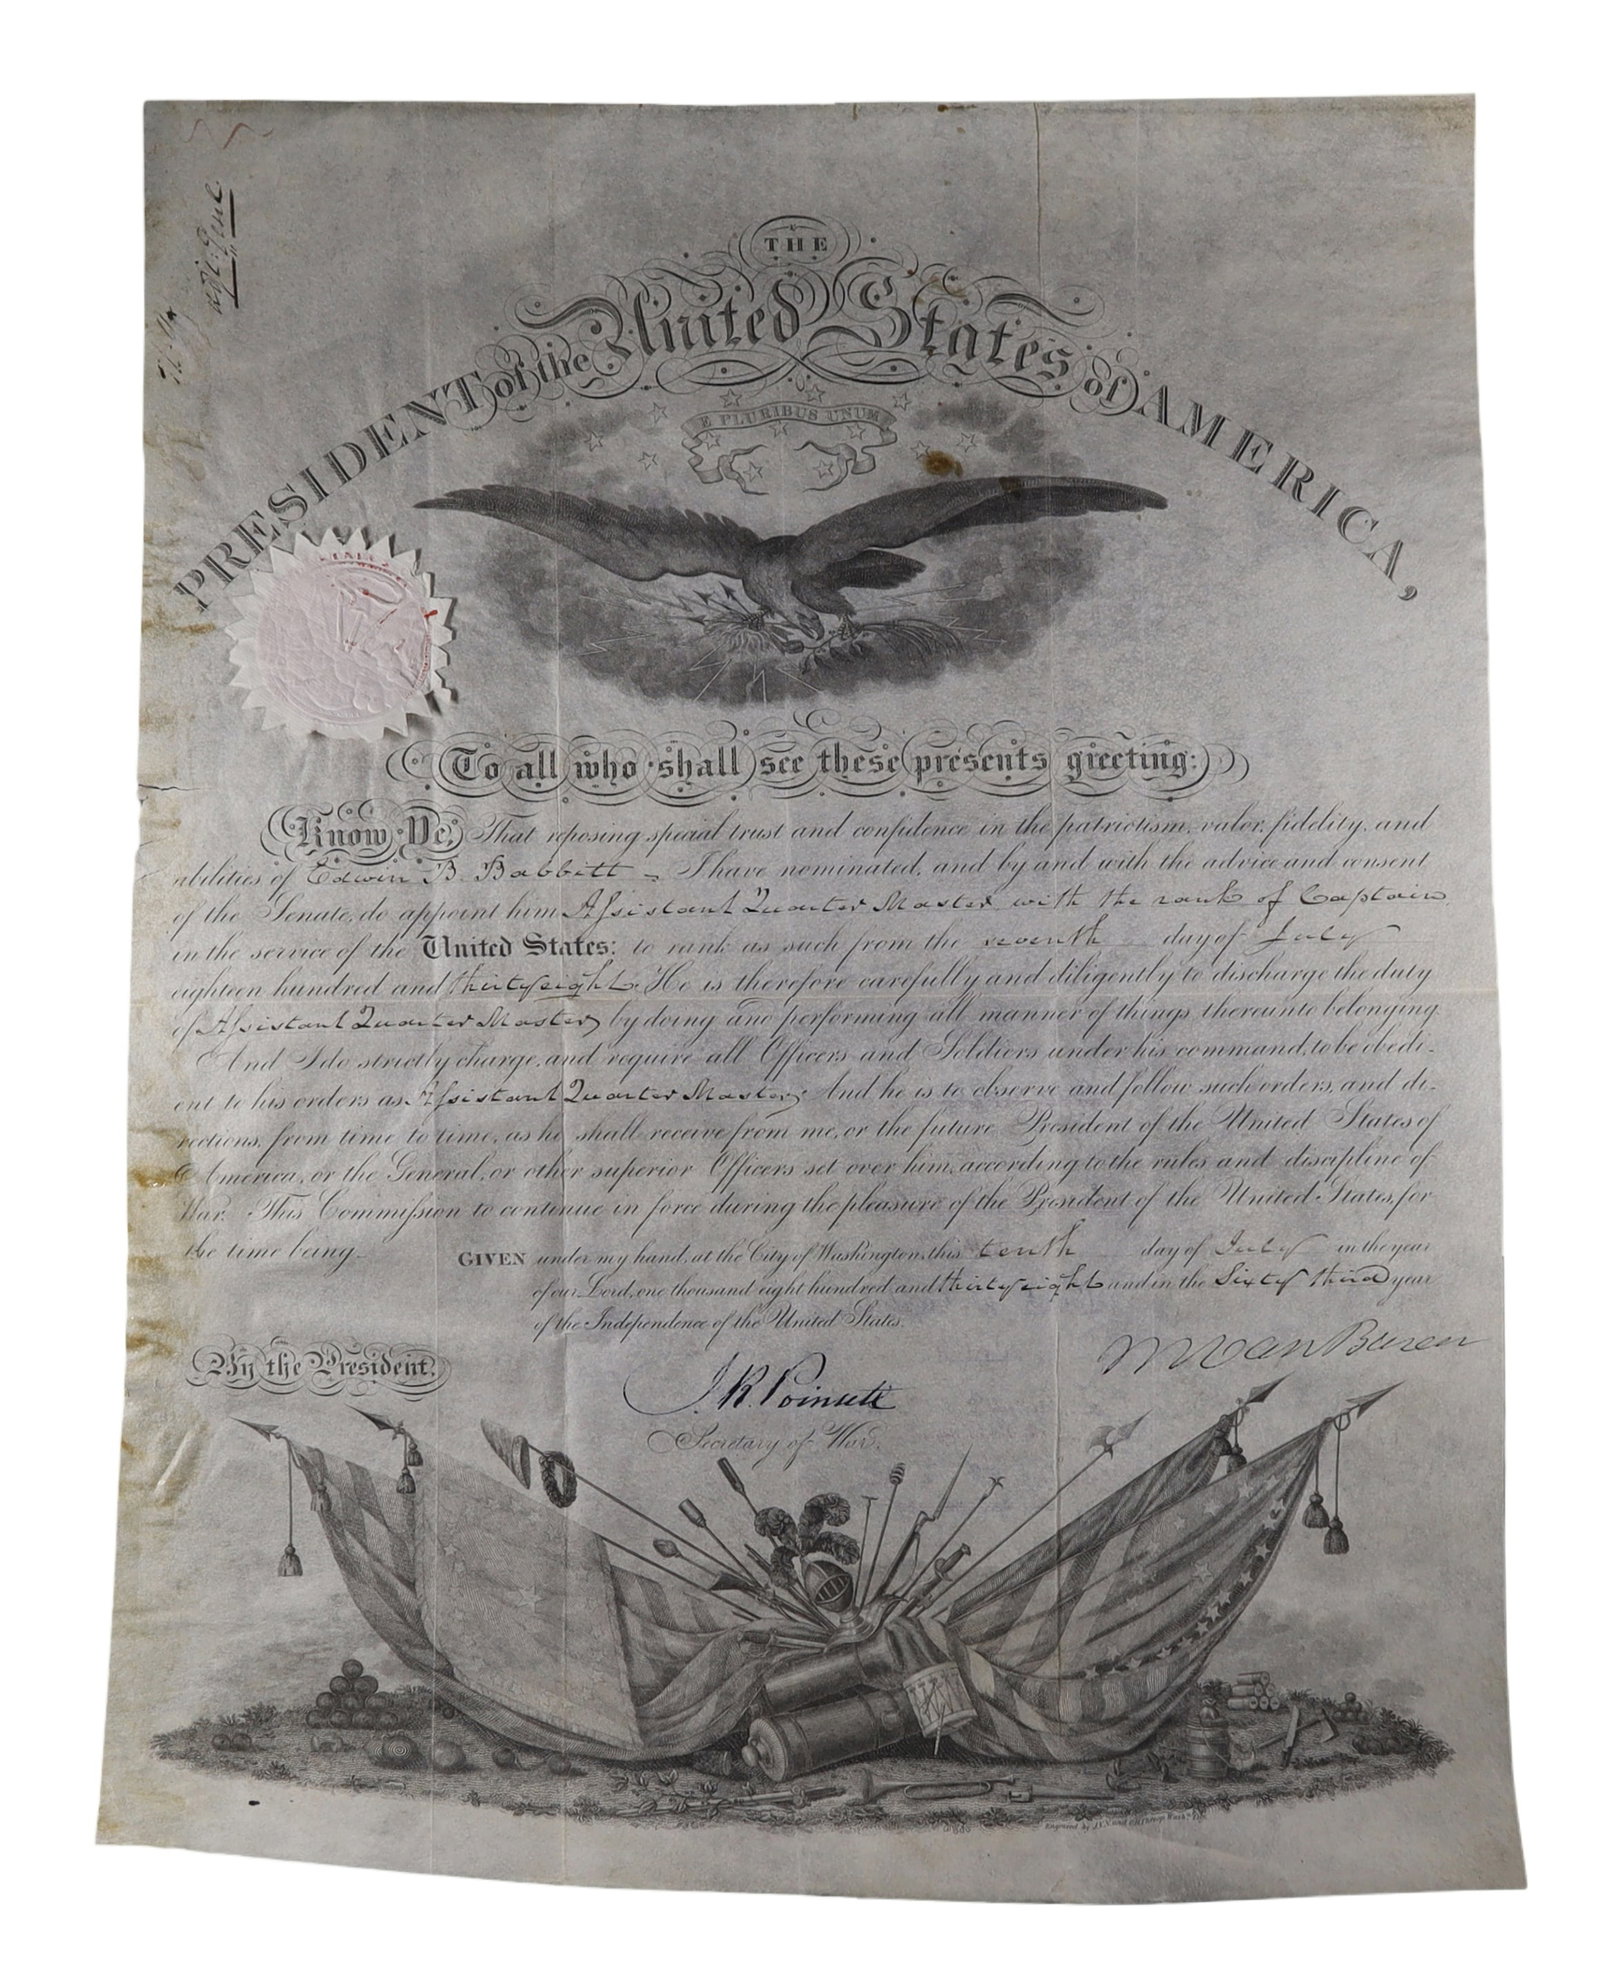 Adjt. Genl.
THE
PRESIDENT of the United States of AMERICA,
E PLURIBUS UNUM
To all who shall see these presents greeting:
Know Ye, That reposing special trust and confidence in the patriotism, valor, fidelity, and
abilities of Edwin B. Babbitt, I have nominated, and by and with the advice and consent
of the Senate, do appoint him Assistant Quarter Master with the rank of Captain
in the service of the United States: to rank as such from the seventh day of July
eighteen hundred and thirty eight. He is therefore carefully and diligently to discharge the duty
of Assistant Quarter Master, by doing and performing all manner of things thereunto belonging.
And I do strictly charge, and require all Officers and Soldiers under his command, to be obedi-
ent to his orders as Assistant Quarter Master; And he is to observe and follow such orders, and di-
rections, from time to time, as he shall receive from me, or the future President of the United States of
America, or the General, or other superior Officers set over him, according to the rules and discipline of
War. This Commission to continue in force during the pleasure of the President of the United States, for
the time being.
GIVEN under my hand, at the City of Washington, this tenth day of July in the year
of our Lord, one thousand eight hundred and thirty eight and in the Sixty third year
of the Independence of the United States.
M Van Buren
By the President.
J. R. Poinsett
Secretary of War.